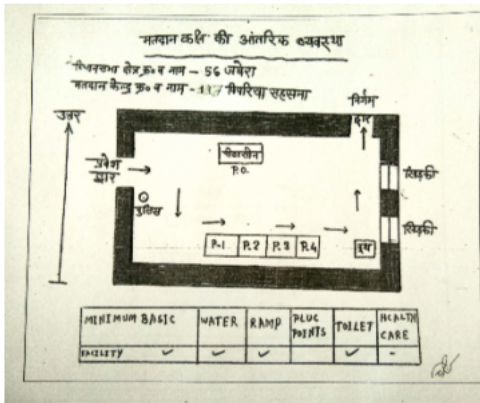 मतदान कक्ष की आंतरिक व्यवस्था
विधानसभा क्षेत्र क्र० व नाम - 56 जबेरा
मतदान केन्द्र क्र० व नाम - पिपरिया सहसना
निर्गम
द्वार
उत्तर
प्रवेश
द्वार
पीठासीन
P.O.
खिड़की
पुलिस
खिड़की
P-1 P.2 P.3 P.4
MINIMUM BASIC WATER RAMP PLUG POINTS TOILET HEALTH CARE
FACILITY ✓ ✓ ✓ ✓ -